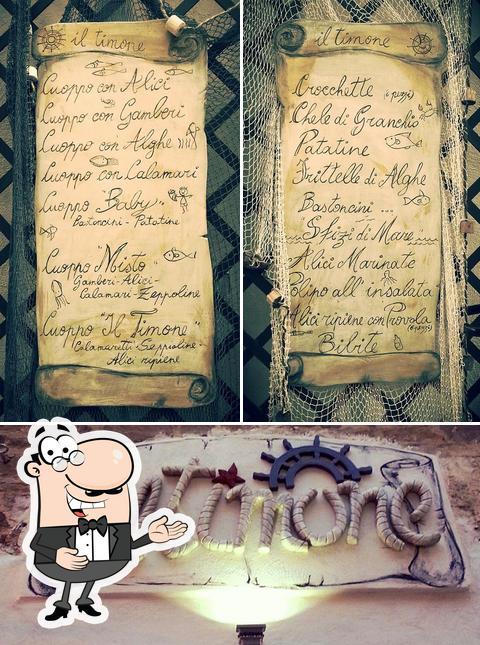 il timone
Cuoppo con Alici
Cuoppo con Gamberi
Cuoppo con Alghe
Cuoppo con Calamari
Cuoppo "Baby"
Bastoncini - Patatine
Cuoppo "Misto"
Gamberi - Alici -
Calamari - Zeppoline
Cuoppo "Il Timone"
Calamaretti - Seppioline -
Alici ripiene
il timone
Crocchette
Chele di Granchio
Patatine
Frittelle di Alghe
Bastoncini ...
Sfizi di Mare
Alici Marinate
Polipo all'insalata
Alici ripiene con Provola
Bibite
Timone